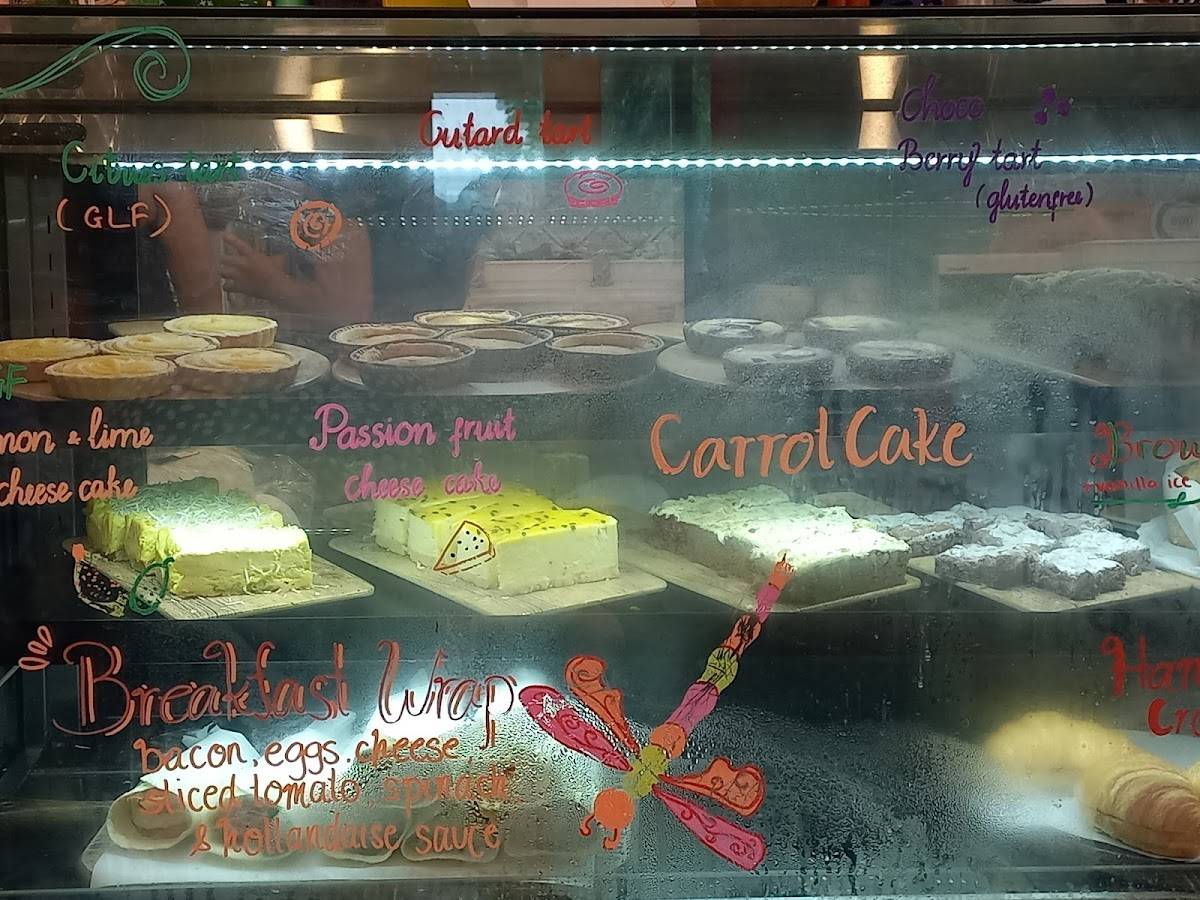 Citrus tart
(GLF)
Cutard tart
Choco
Berry tart
(glutenfree)
GF
mon & lime
cheese cake
Passion fruit
cheese cake
Carrot Cake
Brow
+ vanilla ice
Breakfast Wrap
bacon, eggs, cheese
sliced tomato, spinach
& hollandaise sauce
Ham
Cro